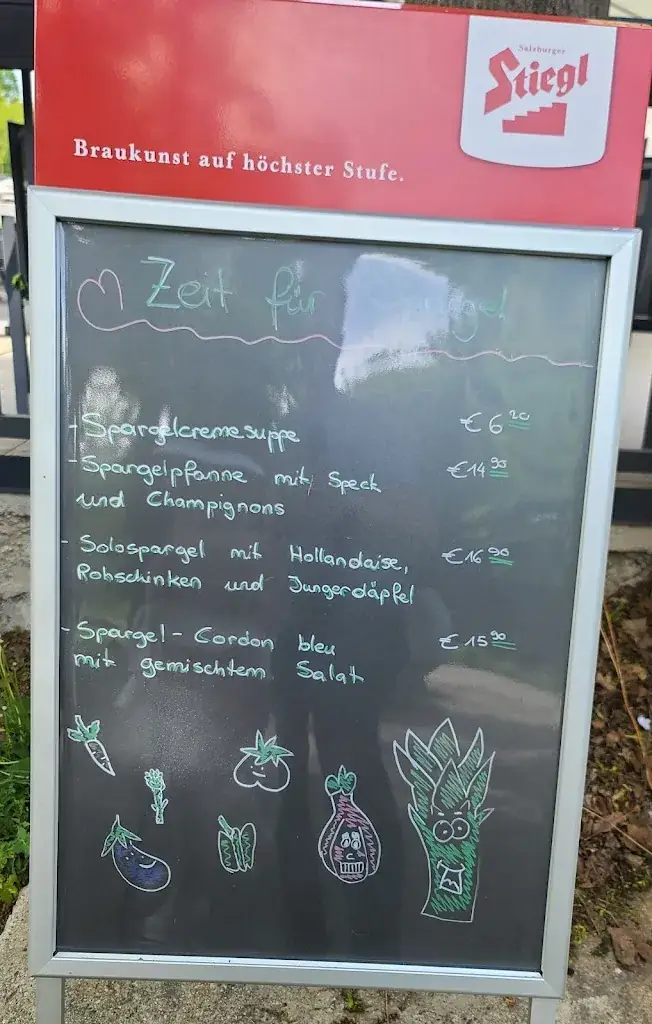 Salzburger
Stiegl
Braukunst auf höchster Stufe.
Zeit für
- Spargelcremesuppe € 6 20
- Spargelpfanne mit Speck € 14 90
und Champignons
- Solospargel mit Hollandaise, € 16 90
Rohschinken und Jungerdäpfel
- Spargel - Cordon bleu € 15 90
mit gemischtem Salat